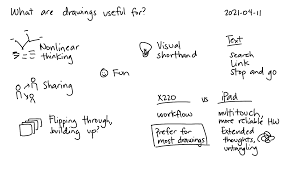 What are drawings useful for?
2021-04-11
Nonlinear
thinking
Visual
shorthand
Text
search
Link
Stop and go
Fun
Sharing
X220 vs iPad
workflow
multitouch,
more reliable HW
Prefer for
most drawings
Extended
thoughts,
untangling
Flipping through,
building up?